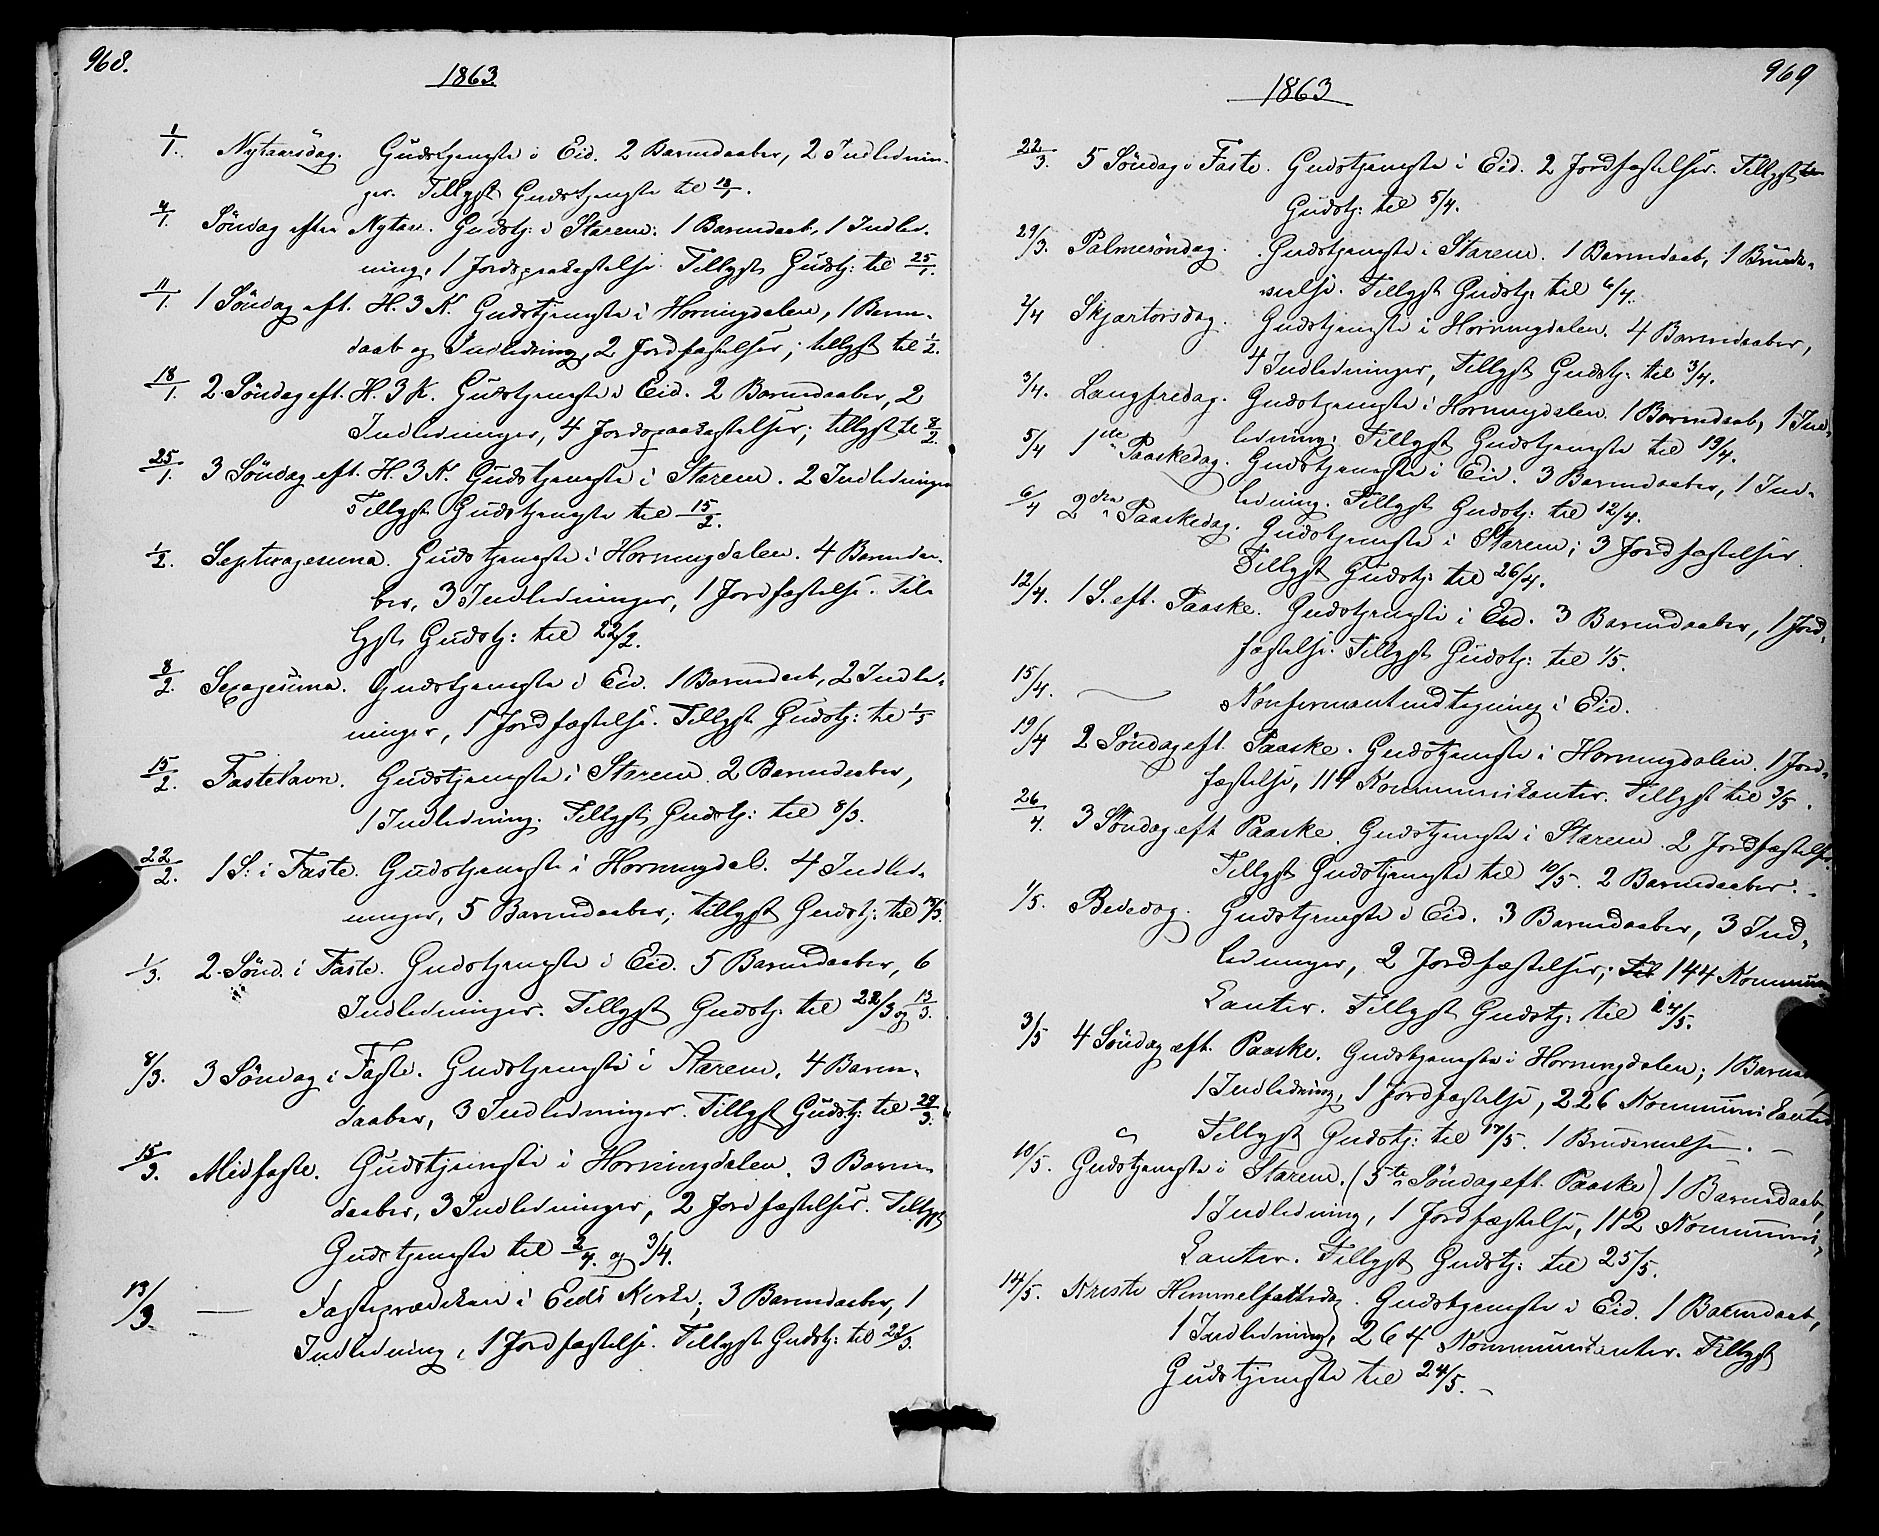 968.
1863.
1/1. Nytaarsdag. Gudstjeneste i Eid. 2 Barndaaber, 2 Indlednin-
ger. Tillyst Gudstjeneste til 18/1.
4/1. Söndag efter Nytaar. Gudstj: i Starem: 1 Barndaab, 1 Indled-
ning, 1 Jordspaakastelse. Tillyst Gudstj: til 25/1.
11/1. 1 Söndag eft. H. 3 K. Gudstjeneste i Horningdalen, 1 Barn-
daab og Indledning, 2 Jordfæstelser; tillyst til 1/2.
18/1. 2. Söndag eft. H. 3 K. Gudstjeneste i Eid. 2 Barndaaber, 2
Indledninger, 4 Jordspaakastelser; tillyst til 8/2.
25/1. 3 Söndag eft. H. 3 K. Gudstjeneste i Starem. 2 Indledninger
Tillyst Gudstjeneste til 15/2.
1/2. Septuagesima. Gudstjeneste i Horningdalen. 4 Barndaa-
ber, 3 Indledninger, 1 Jordfæstelse. Til-
lyst Gudstj: til 22/2.
8/2. Sexagesima. Gudstjeneste i Eid. 1 Barndaab, 2 Indled-
ninger, 1 Jordfæstelse. Tillyst Gudstj: til 1/3
15/2. Fastelavn. Gudstjeneste i Starem. 2 Barndaaber,
1 Indledning. Tillyst Gudstj: til 8/3.
22/2. 1 S: i Faste. Gudstjeneste i Horningdal. 4 Indled-
ninger, 5 Barndaaber; tillyst Gudstj: til 15/3.
1/3. 2. Sönd. i Faste. Gudstjeneste i Eid. 5 Barndaaber, 6
Indledninger. Tillyst Gudstj: til 22/3 og 13/3.
8/3. 3 Söndag i Faste. Gudstjeneste i Starem. 4 Barn-
daaber, 3 Indledninger. Tillyst Gudstj: til 29/3.
15/3. Midfaste. Gudstjeneste i Horningdalen. 3 Barn-
daaber, 3 Indledninger, 2 Jordfæstelser. Tillyst
Gudstjeneste til 2/4. og 3/4.
13/3 — Fasteprædiken i Eids Kirke; 3 Barndaaber, 1
Indledning, 1 Jordfæstelse. Tillyst Gudstj: til 22/3.
969
1863
22/3. 5 Söndag i Faste. Gudstjeneste i Eid. 2 Jordfæstelser. Tillyst
Gudstj: til 5/4.
29/3. Palmesöndag. Gudstjeneste i Starem. 1 Barndaab, 1 Brude-
vielse. Tillyst Gudstj: til 6/4.
2/4 Skjærtorsdag. Gudstjeneste i Horningdalen. 4 Barndaaber,
4 Indledninger, Tillyst Gudstj: til 3/4.
3/4. Langfredag. Gudstjeneste i Horningdalen. 1 Barndaab, 1 Ind-
ledning. Tillyst Gudstjeneste til 19/4.
5/4 1ste Paaskedag. Gudstjeneste i Eid. 3 Barndaaber, 1 Ind-
ledning. Tillyst Gudstj: til 12/4.
6/4 2den Paaskedag. Gudstjeneste i Starem; 3 Jordfæstelser.
Tillyst Gudstj: til 26/4.
12/4. 1 S. eft. Paaske. Gudstjeneste i Eid. 3 Barndaaber, 1 Jord-
fæstelse. Tillyst Gudstj: til 1/5.
15/4. — Konfirmantindtegning i Eid.
19/4 2 Söndag eft. Paaske. Gudstjeneste i Horningdalen. 1 Jord-
fæstelse, 114 Kommunikanter. Tillyst til 3/5.
26/4. 3 Söndag eft Paaske. Gudstjeneste i Starem. 2 Jordfæstelser
Tillyst Gudstjeneste til 10/5. 2 Barndaaber. -
1/5. Bededag. Gudstjeneste i Eid. 3 Barndaaber, 3 Ind-
ledninger, 2 Jordfæstelser; 144 Kommuni-
kanter. Tillyst Gudstj: til 14/5.
3/5 4 Söndag eft. Paaske. Gudstjeneste i Horningdalen; 1 Barnd
1 Indledning, 1 Jordfæstelse, 226 Kommunikanter
Tillyst Gudstj: til 17/5. 1 Brudevielse. -
10/5. Gudstjeneste i Starem. (5te Söndag eft. Paaske) 1 Barndaab,
1 Indledning, 1 Jordfæstelse, 112 Kommuni-
kanter. Tillyst Gudstj: til 25/5.
14/5. Kristi Himmelfartsdag. Gudstjeneste i Eid. 1 Barndaab,
1 Indledning, 264 Kommunikanter. Tillyst
Gudstjeneste til 24/5. -